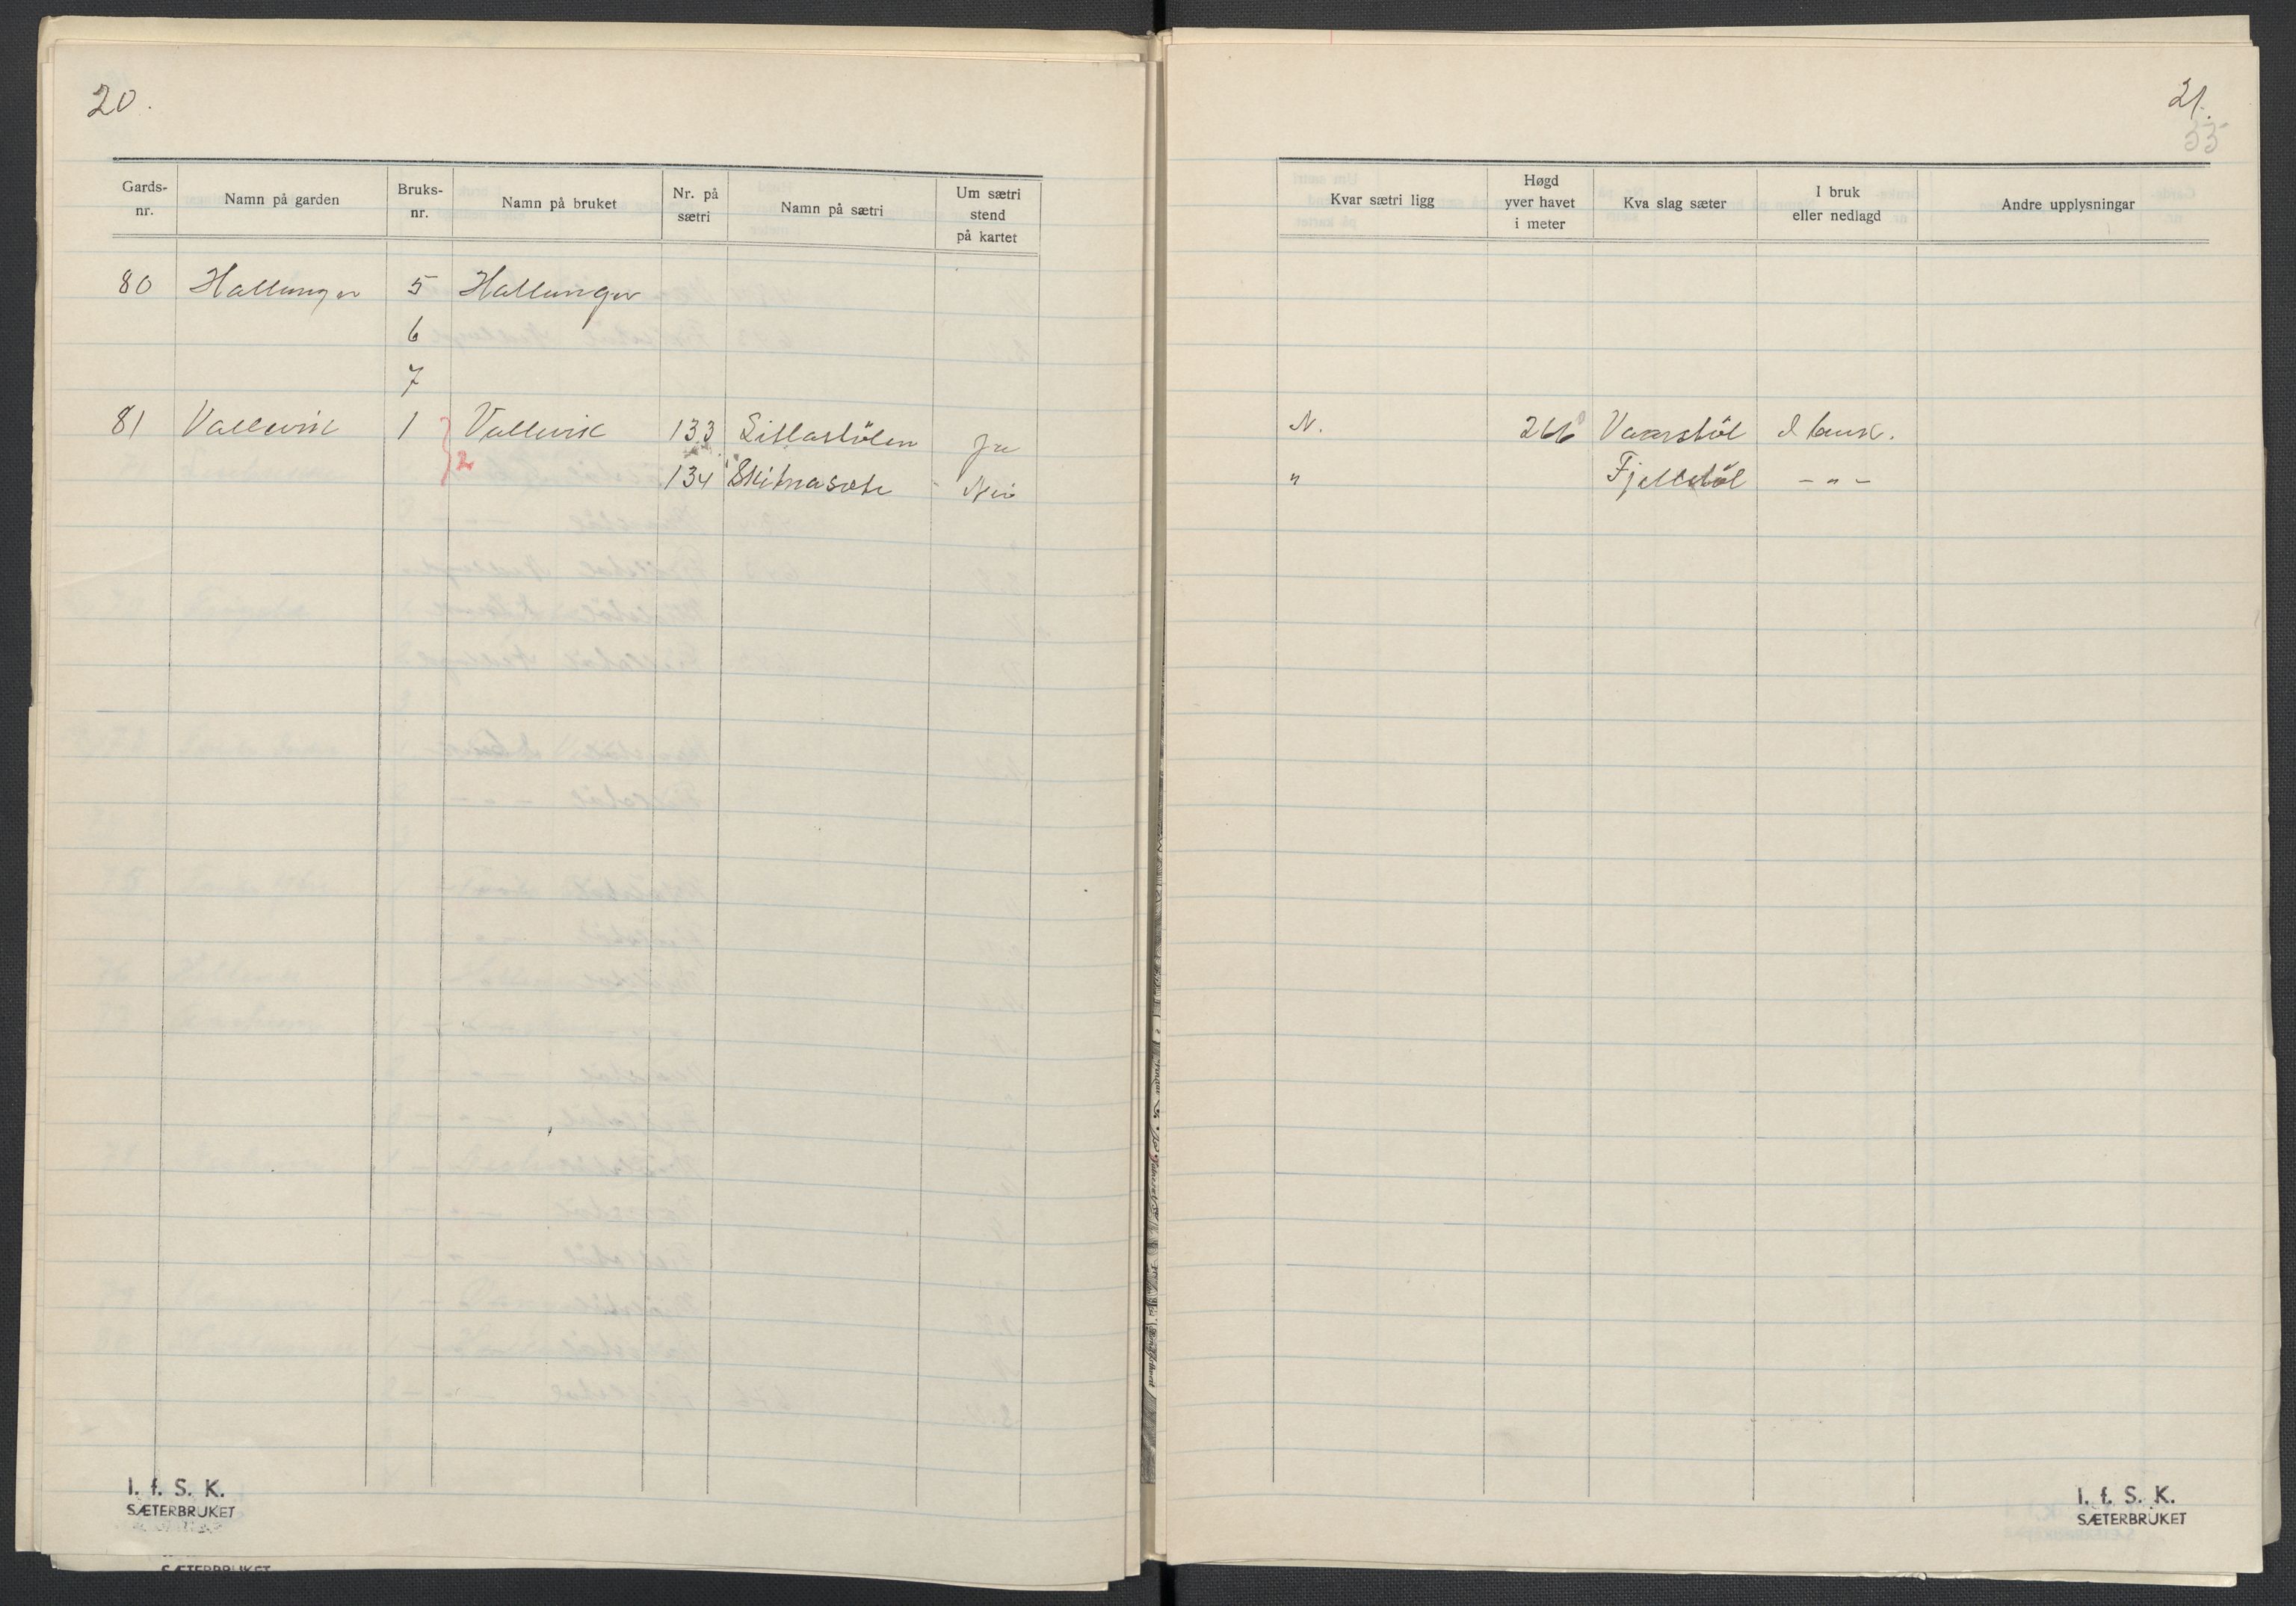 20.
Gards-nr. Namn på garden Bruks-nr. Namn på bruket Nr. på sætri Namn på sætri Um sætri stend på kartet
80 Hallunger 5 Hallunger
6
7
81 Vallevik 1 Vallevik 133 Litlastölen Ja
2 134 Nei
I. f. S. K.
SÆTERBRUKET
SÆTERBRUKET
21.
35
Kvar sætri ligg Høgd yver havet i meter Kva slag sæter I bruk eller nedlagd Andre upplysningar
N. 266 Vaarstöl I bruk.
" Fjellstöl - " -
I. f. S. K.
SÆTERBRUKET